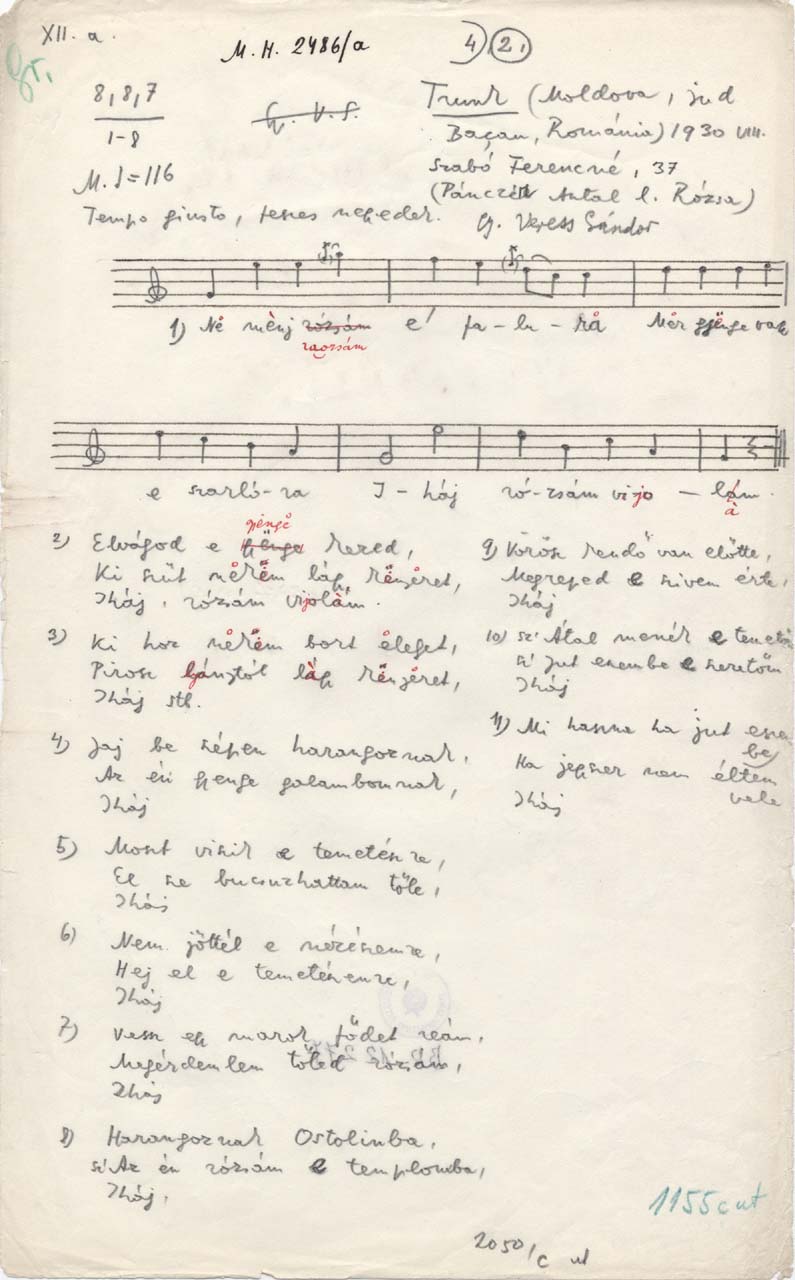 XII. a.
M. H. 2486/a
4) 2.
Gr.
8, 8, 7
1-8
Gy. V. S.
Trunk (Moldova, jud
Bacau, România) 1930 VIII.
Szabó Ferencné, 37
(Pánczél Antal l. Rózsa)
Gy. Veress Sándor
M. ♩=116
Tempo giusto, feszes negyedek.
1) Ne mènj rózsám e' fa-lu-rå Mer gyenge vagy
raozsám
e szarló-ra I-háj ró-zsám vijo-lám.
à
gyengë
2) Elvágod e gyënge kezed,
Ki süt nërëm láp kënyeret,
Iháj, rózsám vijolám.
3) Ki hoz nërëm bort eleget,
Pirosz lyánytól láp kënyeret,
Iháj stb.
4) Jaj be szépen harangoznak,
Az én gyenge galambomnak,
Iháj
5) Moszt viszik e temetészre,
El sze bucsuzhattam tőle,
Iháj
6) Nem jöttél e nézészemre,
Hej el e temetészemre,
Iháj
7) Vessz egy marok födet reám,
Megérdemlem tőled rózsám,
Iháj
8) Harangoznak Ostolinba,
sz' Az én rózsám e templomba,
Iháj,
9) Vörösz kendő van előtte,
Megreped e szivem érte,
Iháj
10) sz' Átal menék e temetőn
sz' jut eszembe e szeretőm
Iháj
11) Mi haszna ha jut eszem
be,
Ha jegyszer nem éltem
vele
Iháj
1155 c ut
2050/c ut